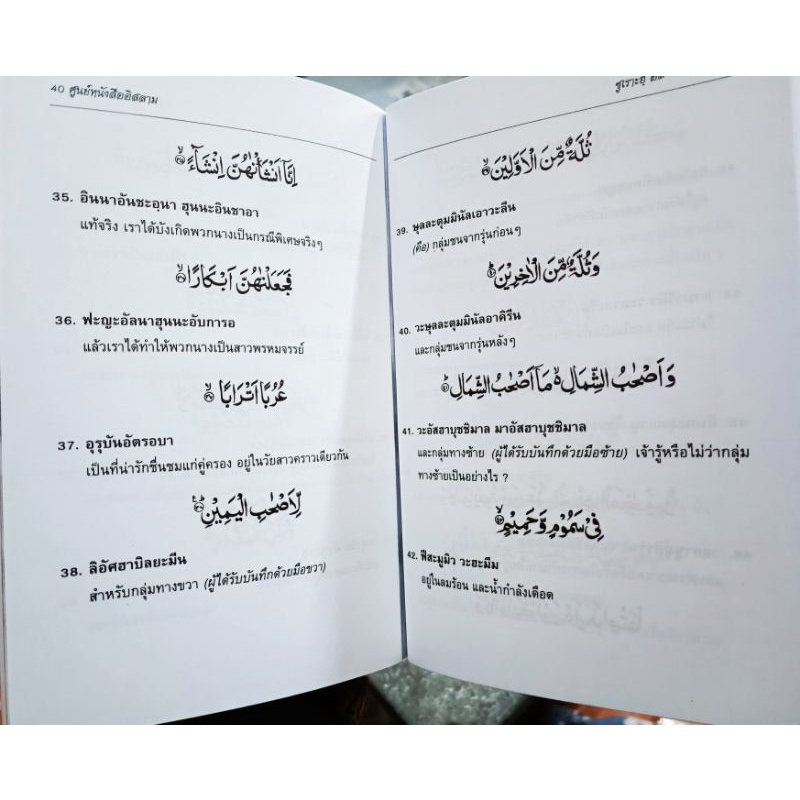 40 ศูนย์หนังสืออิสลาม
اِنَّآ اَنْشَأْنٰهُنَّ اِنْشَآءً
35. อินนาอันชะอฺนา ฮุนนะอินชาอา
แท้จริง เราได้บังเกิดพวกนางเป็นกรณีพิเศษจริงๆ
فَجَعَلْنٰهُنَّ اَبْكَارًا
36. ฟะญะอัลนาฮุนนะอับการอ
แล้วเราได้ทำให้พวกนางเป็นสาวพรหมจรรย์
عُرُبًا اَتْرَابًا
37. อุรุบันอัตรอบา
เป็นที่น่ารักชื่นชมแก่คู่ครอง อยู่ในวัยสาวคราวเดียวกัน
لِّاَصْحٰبِ الْيَمِيْنِ
38. ลิอัศฮาบิลยะมีน
สำหรับกลุ่มทางขวา (ผู้ได้รับบันทึกด้วยมือขวา)
ซูเราะฮฺ
ثُلَّةٌ مِّنَ الْاَوَّلِيْنَ
39. ษุลละตุมมินัลเอาวะลีน
(คือ) กลุ่มชนจากรุ่นก่อนๆ
وَثُلَّةٌ مِّنَ الْاٰخِرِيْنَ
40. วะษุลละตุมมินัลอาคิรีน
และกลุ่มชนจากรุ่นหลังๆ
وَاَصْحٰبُ الشِّمَالِ مَآ اَصْحٰبُ الشِّمَالِ
41. วะอัสฮาบุชชิมาล มาอัสฮาบุชชิมาล
และกลุ่มทางซ้าย (ผู้ได้รับบันทึกด้วยมือซ้าย) เจ้ารู้หรือไม่ว่ากลุ่ม
ทางซ้ายเป็นอย่างไร ?
فِيْ سَمُوْمٍ وَّحَمِيْمٍ
42. ฟีสะมูมิว วะฮะมีม
อยู่ในลมร้อน และน้ำกำลังเดือด